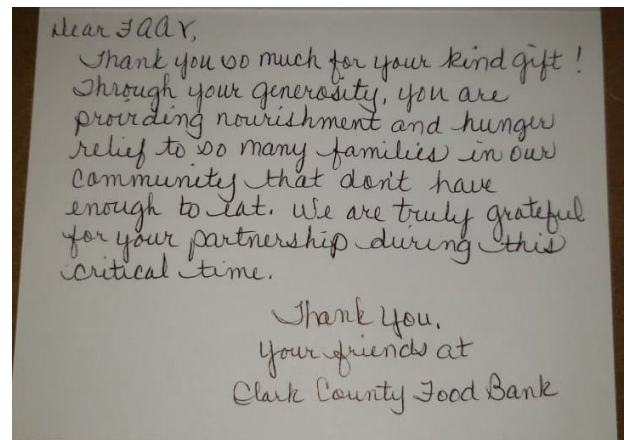 Dear FAAV,
Thank you so much for your kind gift!
Through your generosity, you are
providing nourishment and hunger
relief to so many families in our
community that don't have
enough to eat. We are truly grateful
for your partnership during this
critical time.
Thank You,
Your friends at
Clark County Food Bank